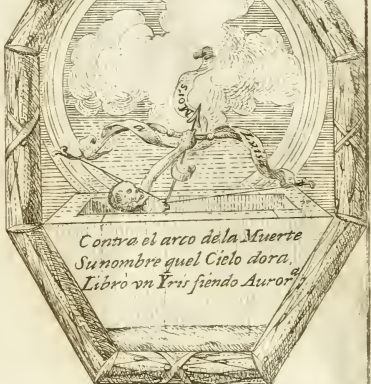 Contra el arco de la Muerte
Su nombre quel Cielo dora,
Libró vn Yris siendo Aurora